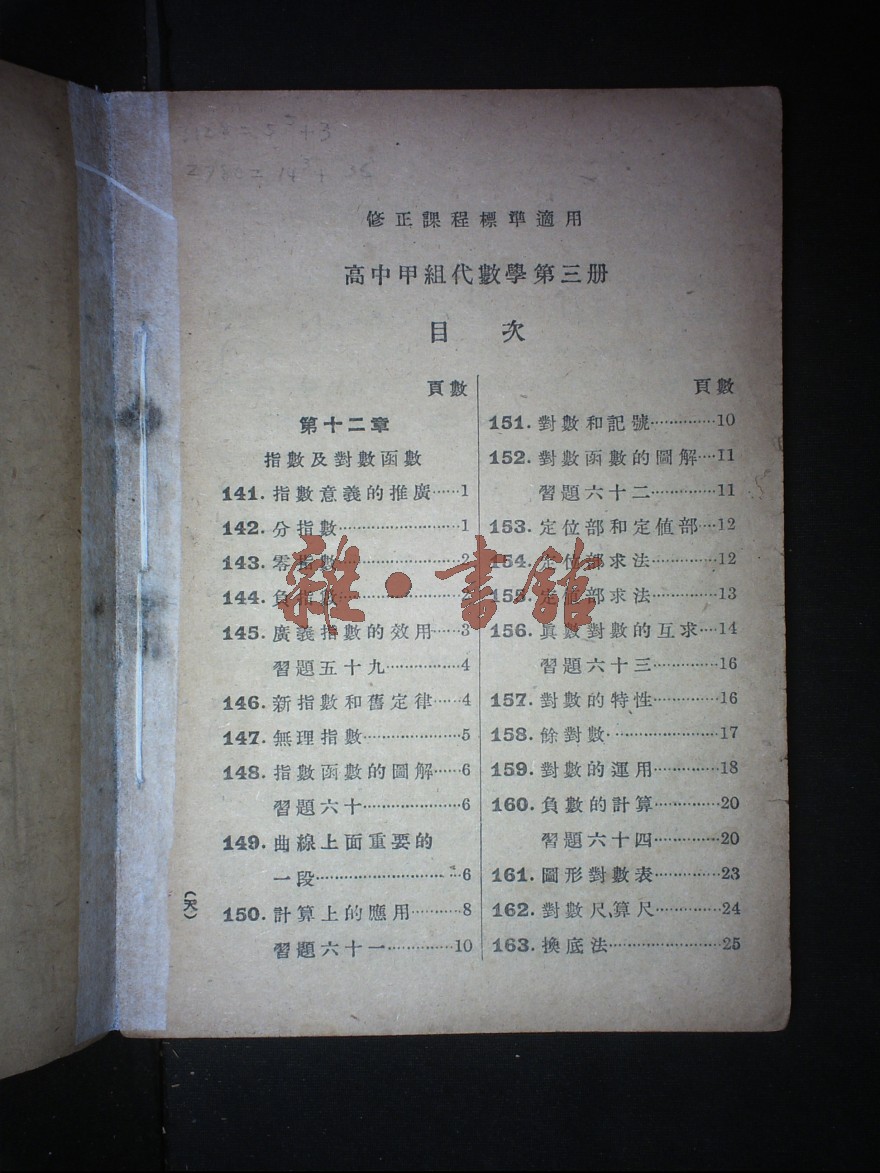 修正課程標準適用
高中甲組代數學第三册
目 次
頁數
第十二章
指數及對數函數
141. 指數意義的推廣……1
142. 分指數……1
143. 零指數……2
144. 負指數……2
145. 廣義指數的效用……3
習題五十九……4
146. 新指數和舊定律……4
147. 無理指數……5
148. 指數函數的圖解……6
習題六十……6
149. 曲線上面重要的
一段……6
150. 計算上的應用……8
習題六十一……10
頁數
151. 對數和記號……10
152. 對數函數的圖解……11
習題六十二……11
153. 定位部和定值部……12
154. 定位部求法……12
155. 定值部求法……13
156. 眞數對數的互求……14
習題六十三……16
157. 對數的特性……16
158. 餘對數……17
159. 對數的運用……18
160. 負數的計算……20
習題六十四……20
161. 圖形對數表……23
162. 對數尺,算尺……24
163. 換底法……25
(天)
雜·書館